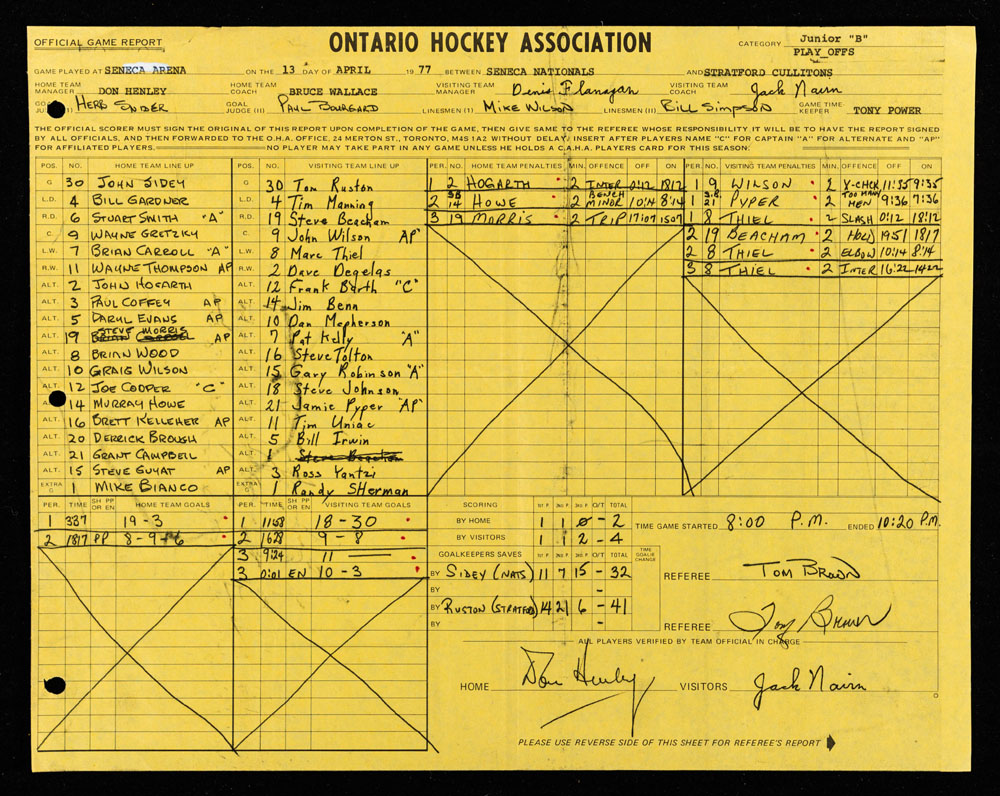 OFFICIAL GAME REPORT ONTARIO HOCKEY ASSOCIATION CATEGORY Junior "B"
PLAY OFFS
GAME PLAYED AT SENECA ARENA ON THE 13 DAY OF APRIL 1977 BETWEEN SENECA NATIONALS AND STRATFORD CULLITONS
HOME TEAM MANAGER DON HENLEY HOME TEAM COACH BRUCE WALLACE VISITING TEAM MANAGER Denis Flanagan VISITING TEAM COACH Jack Nairn
JUDGE (I) HERB SNIDER GOAL JUDGE (II) PAUL LINESMEN (1) MIKE WILSON LINESMEN (II) Bill Simpson GAME TIME-KEEPER TONY POWER
THE OFFICIAL SCORER MUST SIGN THE ORIGINAL OF THIS REPORT UPON COMPLETION OF THE GAME, THEN GIVE SAME TO THE REFEREE WHOSE RESPONSIBILITY IT WILL BE TO HAVE THE REPORT SIGNED
BY ALL OFFICIALS, AND THEN FORWARDED TO THE O.H.A. OFFICE, 24 MERTON ST., TORONTO, M4S 1A2 WITHOUT DELAY. INSERT AFTER PLAYERS NAME "C" FOR CAPTAIN "A" FOR ALTERNATE AND "AP"
FOR AFFILIATED PLAYERS. NO PLAYER MAY TAKE PART IN ANY GAME UNLESS HE HOLDS A C.A.H.A. PLAYERS CARD FOR THIS SEASON.
POS. NO. HOME TEAM LINE UP
G 30 JOHN SIDEY
L.D. 4 BILL GARDNER
R.D. 6 STUART SMITH "A"
C. 9 WAYNE GRETZKY
L.W. 7 BRIAN CARROLL "A"
R.W. 11 WAYNE THOMPSON AP
ALT. 2 JOHN HOGARTH
ALT. 3 PAUL COFFEY AP
ALT. 5 DARYL EVANS AP
ALT. 19 STEVE MORRIS AP
ALT. 8 BRIAN WOOD
ALT. 10 GRAIG WILSON
ALT. 12 JOE COOPER "C"
14 MURRAY HOWE
ALT. 16 BRETT KELLEHER AP
ALT. 20 DERRICK BROUSH
ALT. 21 GRANT CAMPBELL
ALT. 15 STEVE GUYAT AP
EXTRA G 1 MIKE BIANCO
POS. NO. VISITING TEAM LINE UP
G 30 Tom Ruston
L.D. 4 Tim Manning
R.D. 19 Steve Beacham
C. 9 John Wilson AP
L.W. 8 Marc Thiel
R.W. 2 Dave Degelas
ALT. 12 Frank Barth "C"
ALT. 14 Jim Benn
ALT. 10 Dan Mcpherson
ALT. 7 Pat Kelly "A"
ALT. 16 Steve Tolton
ALT. 15 Gary Robinson "A"
ALT. 18 Steve Johnson
ALT. 21 Jamie Pyper "AP"
ALT. 11 Tim Uniac
ALT. 5 Bill Irwin
ALT.
ALT. 3 Ross Yantzi
EXTRA G 1 Randy SHerman
PER. NO. HOME TEAM PENALTIES MIN. OFFENCE OFF ON
1 2 HOGARTH 2 INTER 0:12 18:12
2 SB 14 HOWE 2 BENCH MINOR 10:14 8:14
3 19 MORRIS 2 TRIP 17:07 1507
PER. NO. VISITING TEAM PENALTIES MIN. OFFENCE OFF ON
1 9 WILSON 2 X-CHCK 11:35 9:35
1 21 PYPER 2 TOO MANY MEN 9:36 7:36
1 8 THIEL 2 SLASH 0:12 18:12
2 19 BEACHAM 2 HOLD 1951 1817
2 8 THIEL 2 ELBOW 10:14 8:14
3 8 THIEL 2 INTER 16:22 1422
PER. TIME SH PP OR EN HOME TEAM GOALS
1 337 19-3
2 1817 PP 8-9-6
PER. TIME SH PP OR EN VISITING TEAM GOALS
1 1158 18-30
2 1628 9-8
3 9:24 11
3 0:01 EN 10-3
SCORING 1ST P. 2ND P. 3RD P. O/T TOTAL
BY HOME 1 1 0 - 2
BY VISITORS 1 1 2 - 4
GOALKEEPERS SAVES 1ST P. 2ND P. 3RD P. O/T TOTAL TIME GOALIE CHANGE
BY SIDEY (NATS) 11 7 15 - 32
BY -
BY RUSTON (STRATFORD) 14 21 6 - 41
BY -
TIME GAME STARTED 8:00 P.M. ENDED 10:20 P.M.
REFEREE Tom Brown
REFEREE Tom Brown
ALL PLAYERS VERIFIED BY TEAM OFFICIAL IN CHARGE
HOME Don Henley VISITORS Jack Nairn
PLEASE USE REVERSE SIDE OF THIS SHEET FOR REFEREE'S REPORT